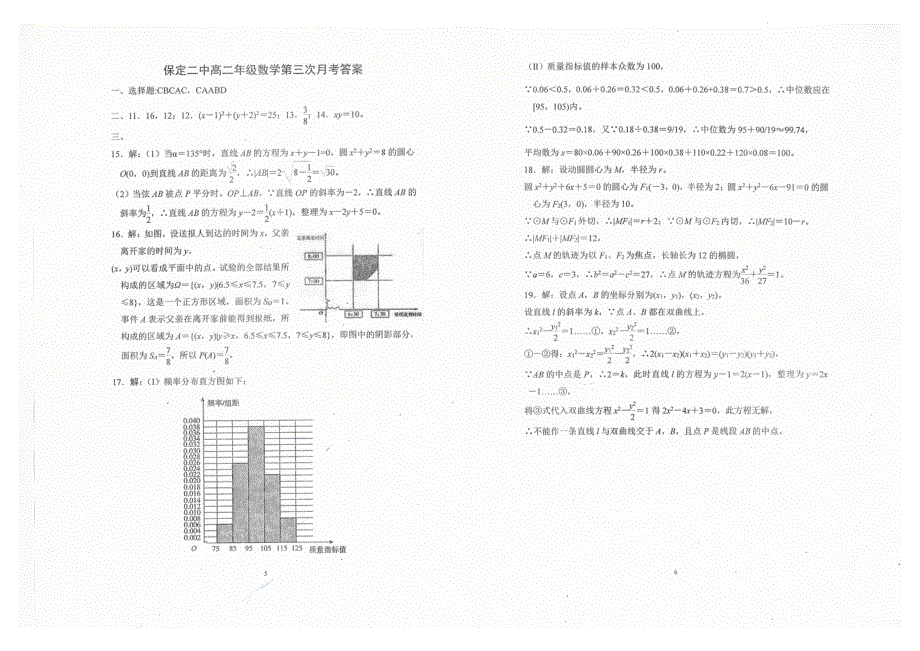 保定二中高二年级数学第三次月考答案
一、选择题:CBCAC，CAABD
二、11．16，12；12．(x－1)²＋(y＋2)²＝25；13．3/8；14．xy＝10。
三、
15．解：（1）当α＝135°时，直线 AB 的方程为 x＋y－1=0，圆 x²＋y²＝8 的圆心
O(0，0)到直线 AB 的距离为√2/2，∴|AB|＝2√(8－1/2)＝√30。
（2）当弦 AB 被点 P 平分时，OP⊥AB，∵直线 OP 的斜率为－2，∴直线 AB 的
斜率为1/2，∴直线 AB 的方程为 y－2＝1/2(x＋1)，整理为 x－2y＋5＝0。
16．解：如图，设送报人到达的时间为 x，父亲
离开家的时间为 y。
(x，y)可以看成平面中的点。试验的全部结果所
构成的区域为Ω＝{(x，y)|6.5≤x≤7.5，7≤y
≤8}，这是一个正方形区域，面积为 SΩ＝1。
事件 A 表示父亲在离开家前能得到报纸，所
构成的区域为 A＝{(x，y)|y≥x，6.5≤x≤7.5，7≤y≤8}，即图中的阴影部分，
面积为 SA＝7/8。所以 P(A)＝7/8。
父亲离家时间
8:00
7:00
O
6:30
7:30
报纸送到时间
17．解：（I）频率分布直方图如下：
频率/组距
0.040
0.038
0.036
0.034
0.032
0.030
0.028
0.026
0.024
0.022
0.020
0.018
0.016
0.014
0.012
0.010
0.008
0.006
0.004
0.002
O 75 85 95 105 115 125 质量指标值
5
（II）质量指标值的样本众数为 100，
∵0.06＜0.5，0.06＋0.26＝0.32＜0.5，0.06＋0.26+0.38＝0.7＞0.5，∴中位数应在
[95，105)内。
∵0.5－0.32＝0.18，又∵0.18÷0.38＝9/19，∴中位数为 95＋90/19≈99.74，
平均数为 x＝80×0.06＋90×0.26＋100×0.38＋110×0.22＋120×0.08＝100。
18．解：设动圆圆心为 M，半径为 r。
圆 x²＋y²＋6x＋5＝0 的圆心为 F₁(－3，0)，半径为 2；圆 x²＋y²－6x－91＝0 的圆
心为 F₂(3，0)，半径为 10。
∵⊙M 与⊙F₁外切，∴|MF₁|＝r＋2；∵⊙M 与⊙F₂内切，∴|MF₂|＝10－r。
∴|MF₁|＋|MF₂|＝12，
∴点 M 的轨迹为以 F₁、F₂为焦点，长轴长为 12 的椭圆。
∵a＝6，c＝3，∴b²＝a²－c²＝27，∴点 M 的轨迹方程为x²/36＋y²/27＝1。
19．解：设点 A，B 的坐标分别为(x₁，y₁)，(x₂，y₂)，
设直线 l 的斜率为 k，∵点 A、B 都在双曲线上，
∴x₁²－y₁²/2＝1……①，x₂²－y₂²/2＝1……②，
①－②得：x₁²－x₂²＝y₁²/2－y₂²/2，∴2(x₁－x₂)(x₁＋x₂)＝(y₁－y₂)(y₁＋y₂)，
∵AB 的中点是 P，∴2＝k，此时直线 l 的方程为 y－1＝2(x－1)，整理为 y＝2x
－1……③，
将③式代入双曲线方程 x²－y²/2＝1 得 2x²－4x＋3＝0，此方程无解，
∴不能作一条直线 l 与双曲线交于 A，B，且点 P 是线段 AB 的中点。
6